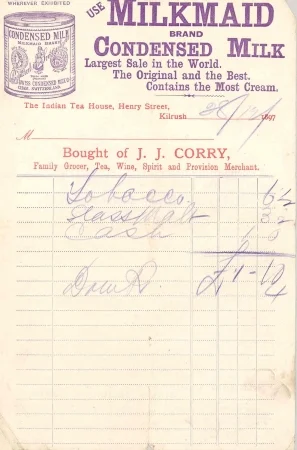 WHEREVER EXHIBITED
CONDENSED MILK
MILKMAID BRAND
CHAM, SWITZERLAND
USE MILKMAID
BRAND
CONDENSED MILK
Largest Sale in the World.
The Original and the Best.
Contains the Most Cream.
The Indian Tea House, Henry Street,
Kilrush 28/12/1897
M
Bought of J. J. CORRY,
Family Grocer, Tea, Wine, Spirit and Provision Merchant.
Tobacco 6½
Glass Malt
Cash
£1-10